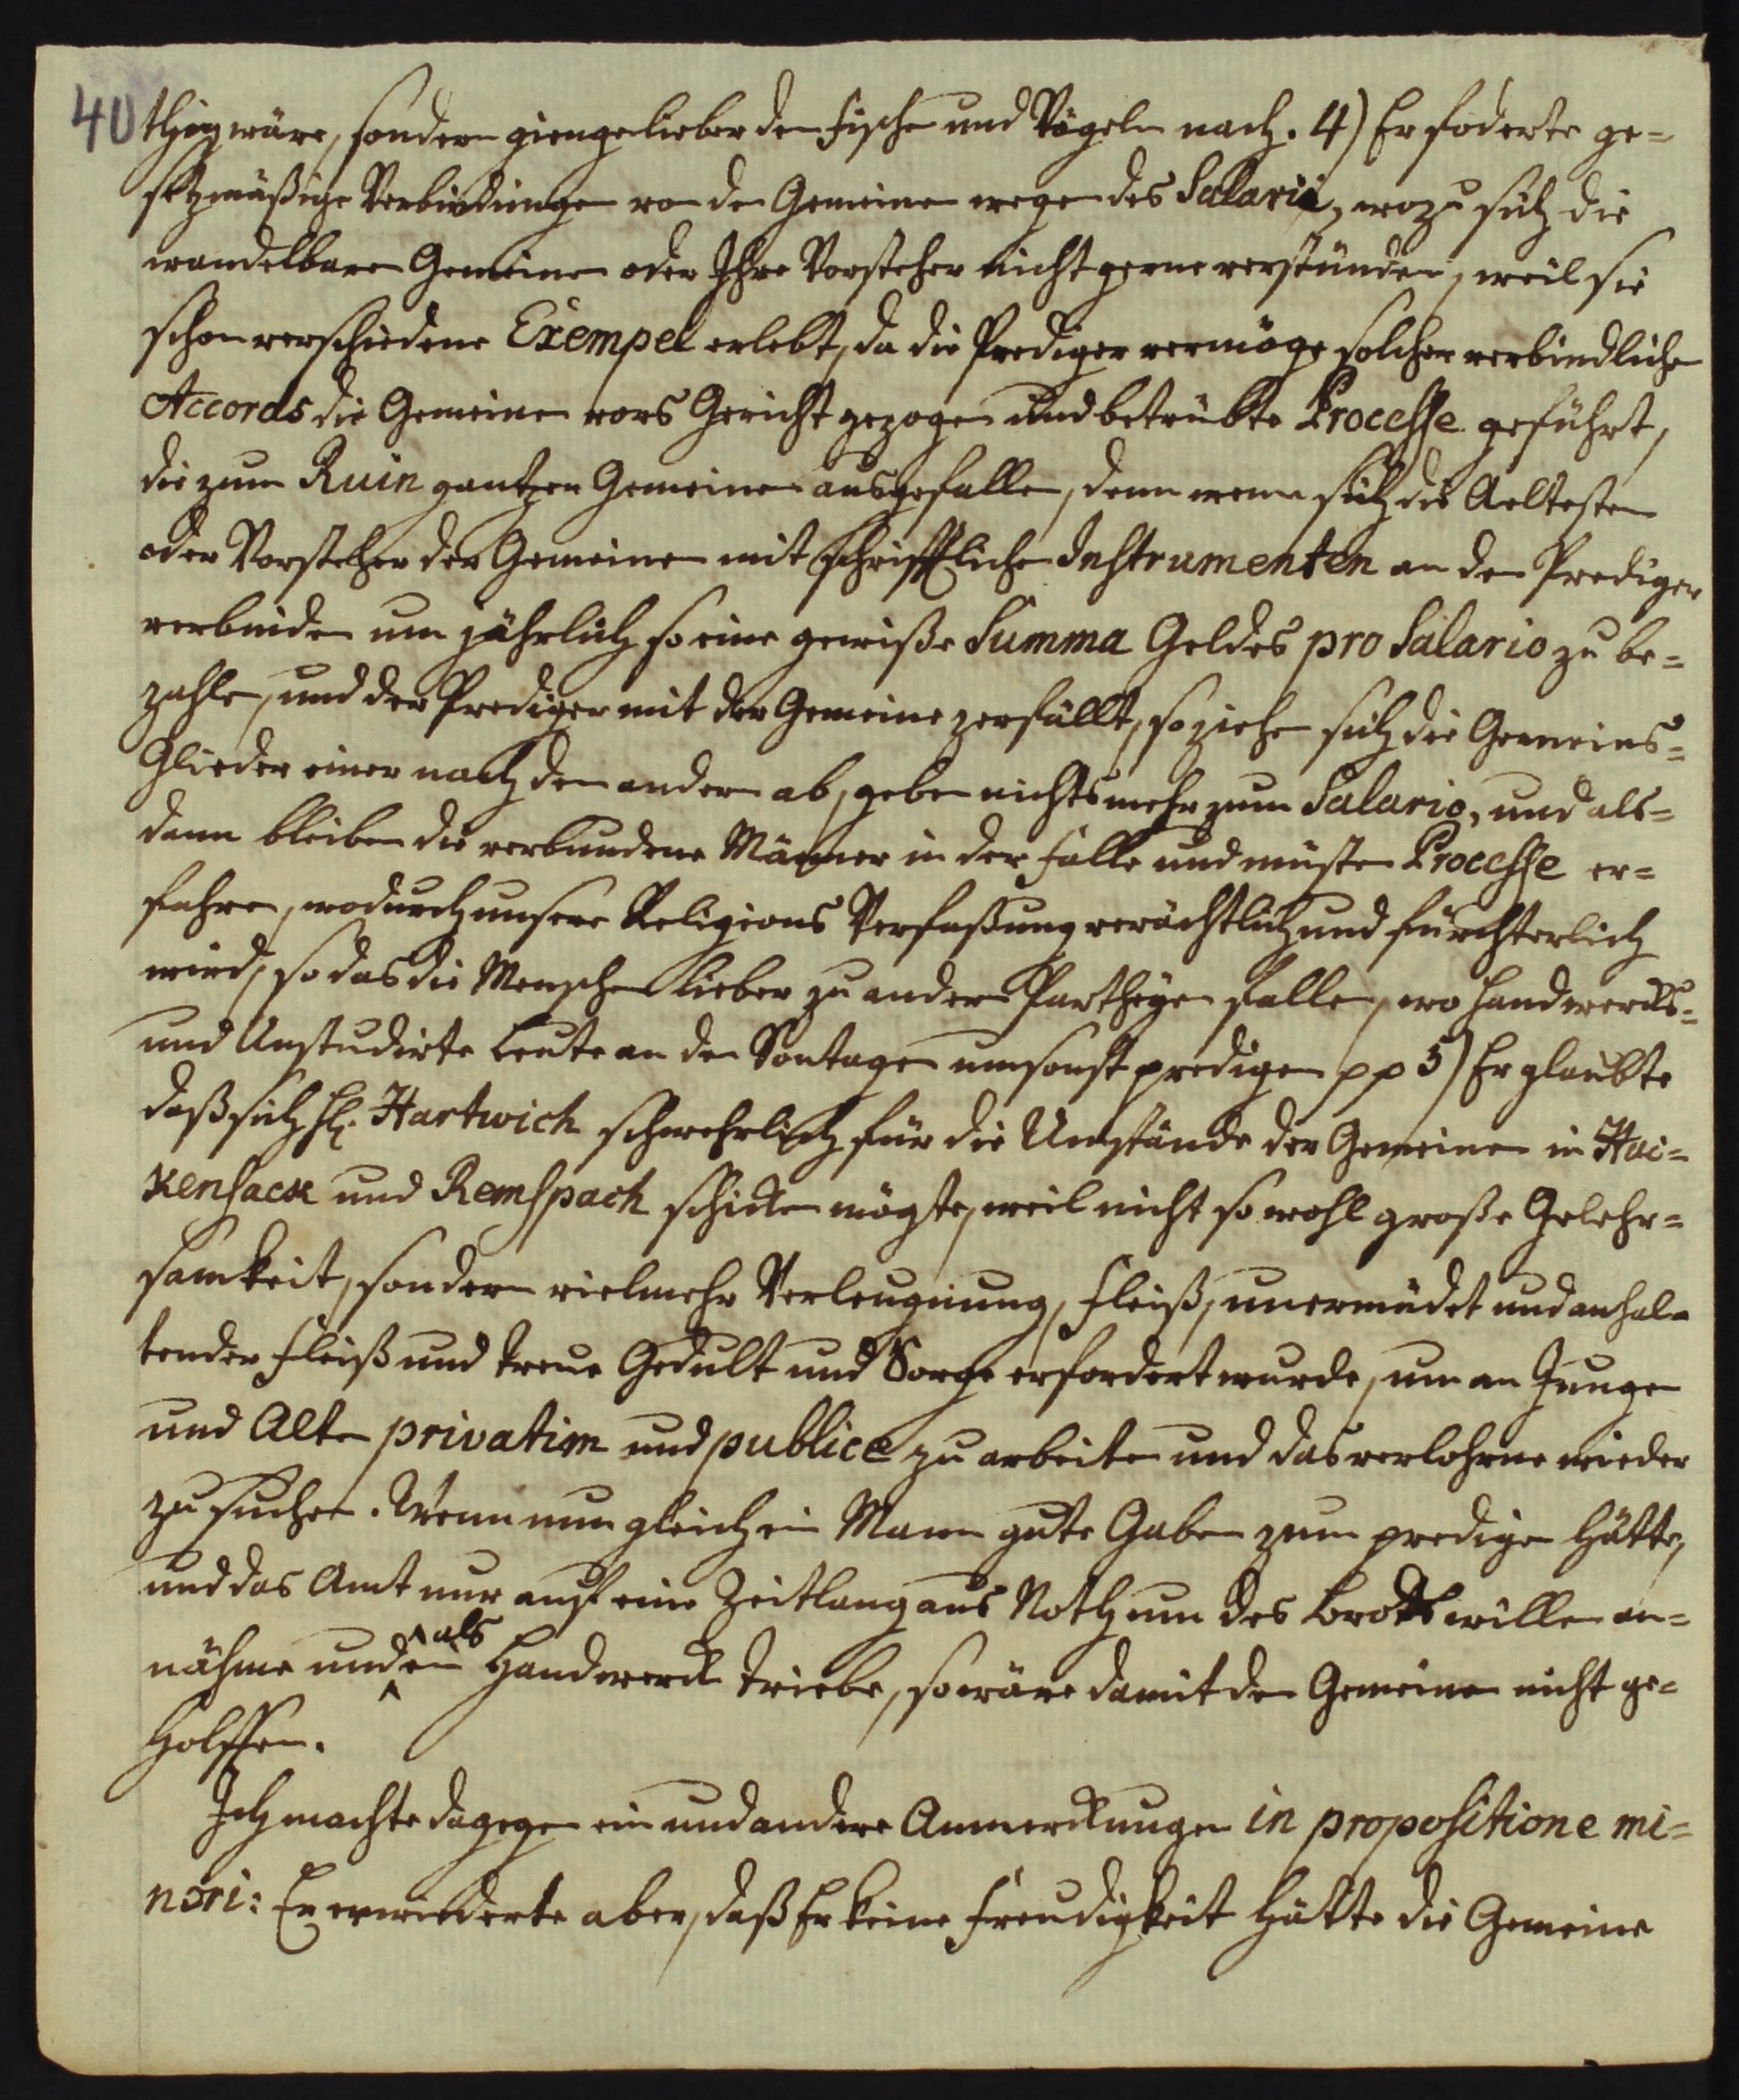 40 thig wäre, sondern gienge lieber den Fischen und Vögeln nach. 4) Er foderte ge=
setzmäßige Verbindungen von den Gemeinen wegen des Salarii, wozu sich die
wandelbaren Gemeinen oder Ihre Vorsteher nicht gerne verstünden, weil sie
schon verschiedene Exempel erlebt, da die Prediger vermöge solcher verbindlichen
Accords die Gemeinen vors Gericht gezogen und betrübte Processe geführt,
die zum Ruin gantzer Gemeinen ausgefallen, denn wenn sich die Aeltesten
oder Vorsteher der Gemeinen mit schrifftlichen Instrumenten an den Prediger
verbinden um jährlich so eine gewiße Summa Geldes pro Salario zu be=
zahlen, und der Prediger mit der Gemeine zerfällt, so ziehen sich die Gemeins=
Glieder einer nach dem andern ab, geben nichts mehr zum Salario, und als=
dann bleiben die verbundene Männer in der Falle und müsten Processe er=
fahren, wodurch unsere Religions Verfaßung verächtlich und fürchterlich
wird, so das die Menschen lieber zu andern Partheyen fallen, wo Handwercks=
und Unstudirte Leute an den Sontagen umsonst predigen pp 5) Er glaubte
daß sich H. Hartwich schwehrlich für die Umstände der Gemeinen in Hac=
kensack und Remspach schicken mögte, weil nicht so wohl große Gelehr=
samkeit, sondern vielmehr Verleugnung, Fleiß, unermüdet und anhal=
tender Fleiß und treue Gedult und Sorge erfordert wurde, um an Jungen
und Alten privatim und publice zu arbeiten und das verlohrne wieder
zu suchen. Wenn nun gleich ein Mann gute Gaben zum predigen hätte,
und das Amt nur auf eine Zeitlang aus Noth um des Brodts willen an=
nähme und als ein Handwerck triebe, so wäre damit den Gemeinen nicht ge=
holffen.
Ich machte dagegen ein und andere Anmerckungen in propositione mi=
nori: Er erwiederte aber, daß Er keine Freudigkeit hätte die Gemeine